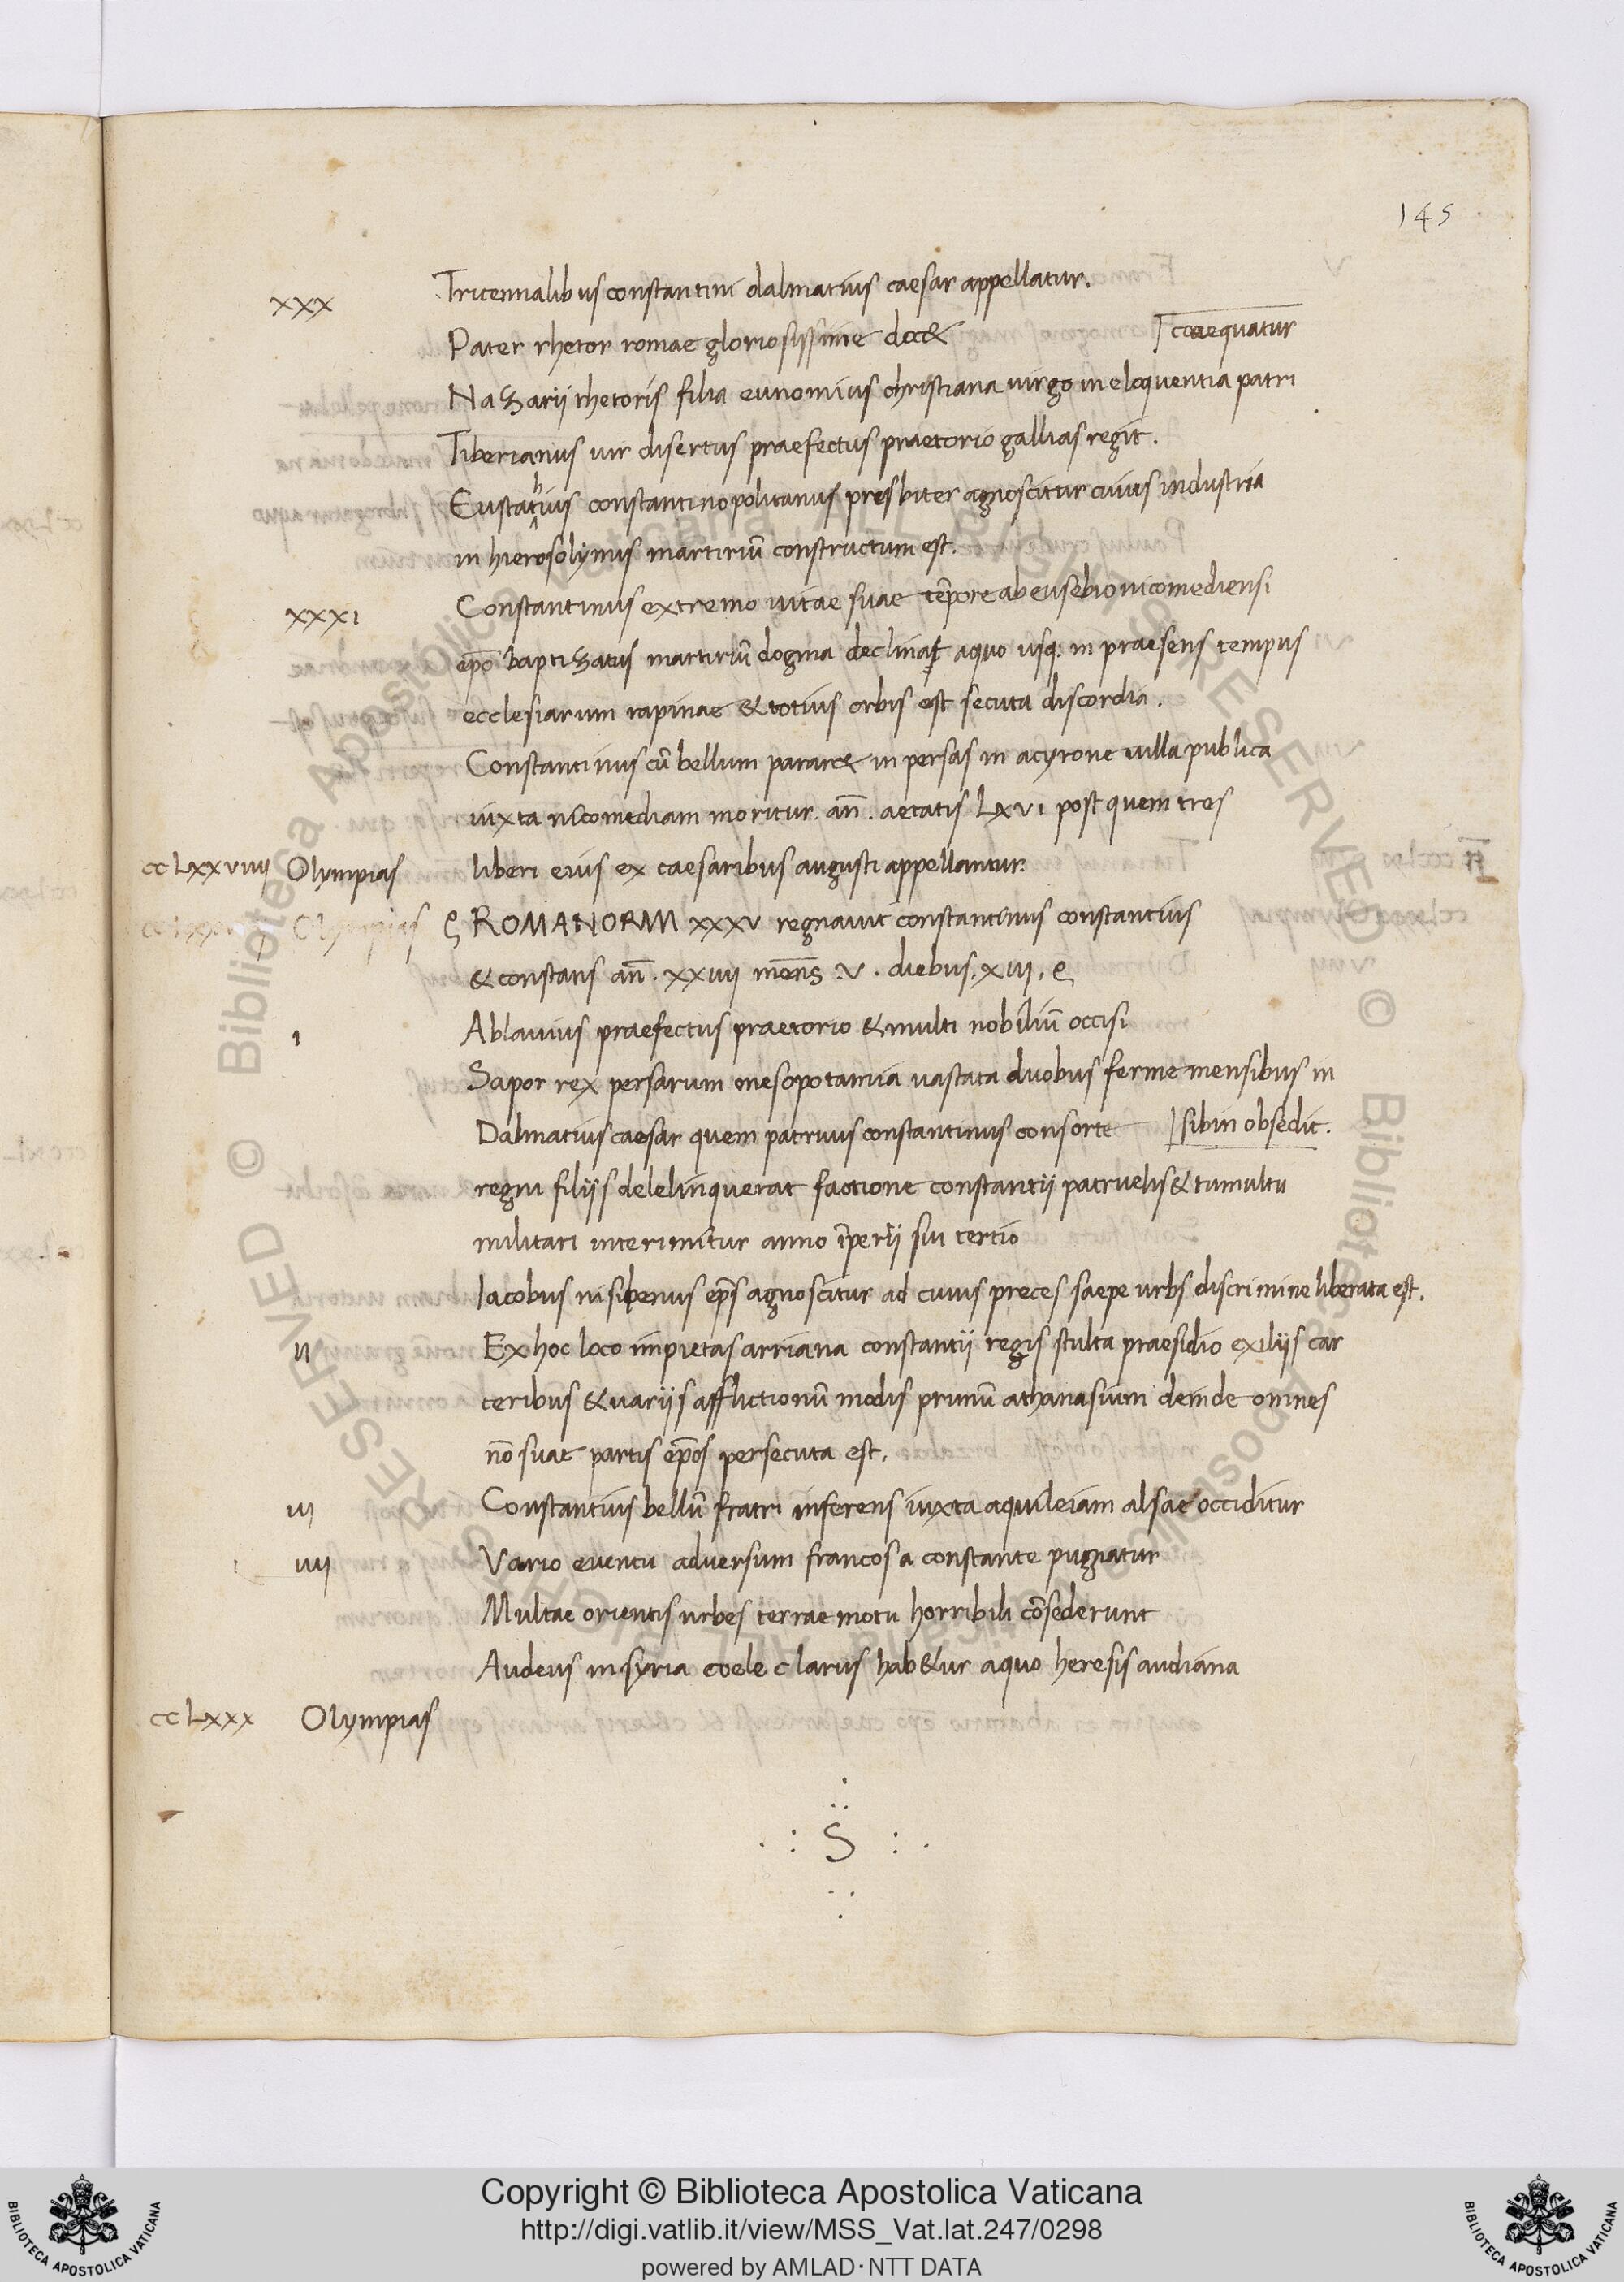 145
xxx Tricennalibus constantini dalmatius caesar appellatur.
Pater rhetor romae gloriosissime doc& coaequatur
Nazarii rhetoris filia eunomius christiana uirgo in eloquentia patri
Tiberianus uir disertus praefectus praetorio gallias regit.
Eustathius constantinopolitanus presbiter agnoscitur cuius industria
in hierosolymis martiriũ constructum est.
xxxi Constantinus extremo uitae suae tẽpore ab eusebio nicomediensi
ep̃o baptizatus martiriũ dogma declinat a quo usq: in praesens tempus
ecclesiarum rapinae & totius orbis est secuta discordia.
Constantinus cũ bellum parar& in persas in acyrone uilla publica
iuxta nicomediam moritur. añ. aetatis Lxvi post quem tres
cc Lxxviiii Olympias liberi eius ex caesaribus augusti appellantur.
Olympias ROMANORUM xxxv regnauit constantinus constantius
& constans añ. xxiiii meñs .v. diebus. xiii.
i Ablauius praefectus praetorio & multi nobiliũ occisi
Sapor rex persarum mesopotamia uastata duobus ferme mensibus in
Dalmatius caesar quem patruus constantinus consorte sibin obsedit.
regni filijs delelinquerat factione constantij patruelis & tumultu
militari interimitur anno ĩperij sui tertio
Iacobus nisibenus ep̃s agnoscitur ad cuius preces saepe urbs discrimine liberata est.
ii Ex hoc loco impietas arriana constantij regis stulta praesidio exilijs car
ceribus & uarijs afflictionũ modis primũ athanasium deinde omnes
nõ suae partis ep̃os persecuta est.
iii Constantius bellũ fratri inferens iuxta aquileiam alsae occiditur
iiii Vario euentu aduersum francos a constante pugnatur
Multae orientis urbes terrae motu horribili cõsederunt
Audeus in syria coele clarus hab&ur a quo heresis audiana
cc Lxxx Olympias
S
Copyright © Biblioteca Apostolica Vaticana
http://digi.vatlib.it/view/MSS_Vat.lat.247/0298
powered by AMLAD·NTT DATA